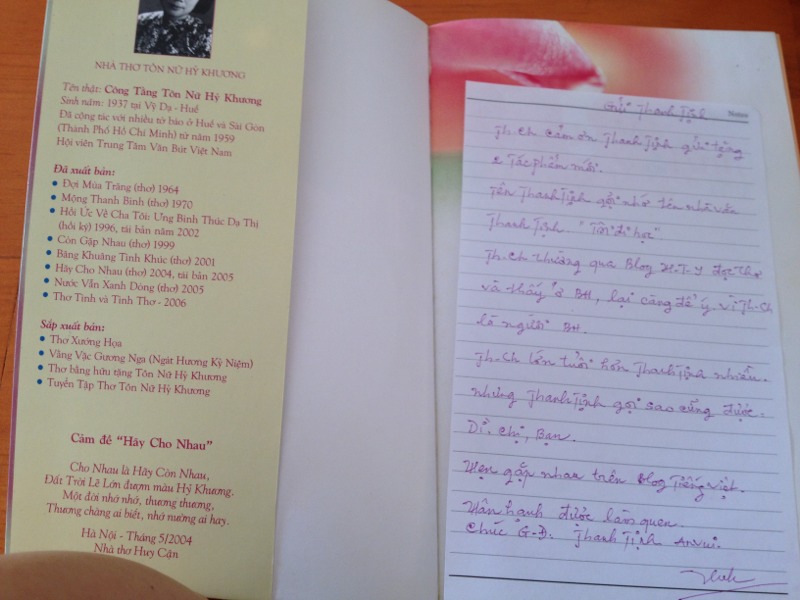 NHÀ THƠ TÔN NỮ HỶ KHƯƠNG
Tên thật: Công Tằng Tôn Nữ Hỷ Khương
Sinh năm: 1937 tại Vỹ Dạ - Huế
Đã cộng tác với nhiều tờ báo ở Huế và Sài Gòn
(Thành Phố Hồ Chí Minh) từ năm 1959
Hội viên Trung Tâm Văn Bút Việt Nam
Đã xuất bản:
• Đợi Mùa Trăng (thơ) 1964
• Mộng Thanh Bình (thơ) 1970
• Hồi Ức Về Cha Tôi: Ưng Bình Thúc Dạ Thị
(hồi ký) 1996, tái bản năm 2002
• Còn Gặp Nhau (thơ) 1999
• Bâng Khuâng Tình Khúc (thơ) 2001
• Hãy Cho Nhau (thơ) 2004, tái bản 2005
• Nước Vẫn Xanh Dòng (thơ) 2005
• Thơ Tình và Tình Thơ - 2006
Sắp xuất bản:
• Thơ Xướng Họa
• Vằng Vặc Gương Nga (Ngát Hương Kỷ Niệm)
• Thơ bằng hữu tặng Tôn Nữ Hỷ Khương
• Tuyển Tập Thơ Tôn Nữ Hỷ Khương
Cảm đề "Hãy Cho Nhau"
Cho Nhau là Hãy Còn Nhau,
Đất Trời Lẽ Lớn đượm màu Hỷ Khương.
Một đời nhớ nhớ, thương thương,
Thương chàng ai biết, nhớ nường ai hay.
Hà Nội - Tháng 5/2004
Nhà thơ Huy Cận
Notes
Gửi Thanh Tịnh
Th.Ch cảm ơn Thanh Tịnh gửi tặng
2 Tác phẩm mới.
Tên Thanh Tịnh gợi nhớ tên nhà văn
Thanh Tịnh "Tôi đi học".
Th.Ch thường qua Blog H.T.Y đọc thơ
và thấy ở BH, lại càng để ý vì Th.Ch
là người BH.
Th.Ch lớn tuổi hơn Thanh Tịnh nhiều.
nhưng Thanh Tịnh gọi sao cũng được.
Dì, Chị, Bạn.
Hẹn gặp nhau trên Blog Tiếng Việt.
Hân hạnh được làm quen.
Chúc G.Đ. Thanh Tịnh An vui.